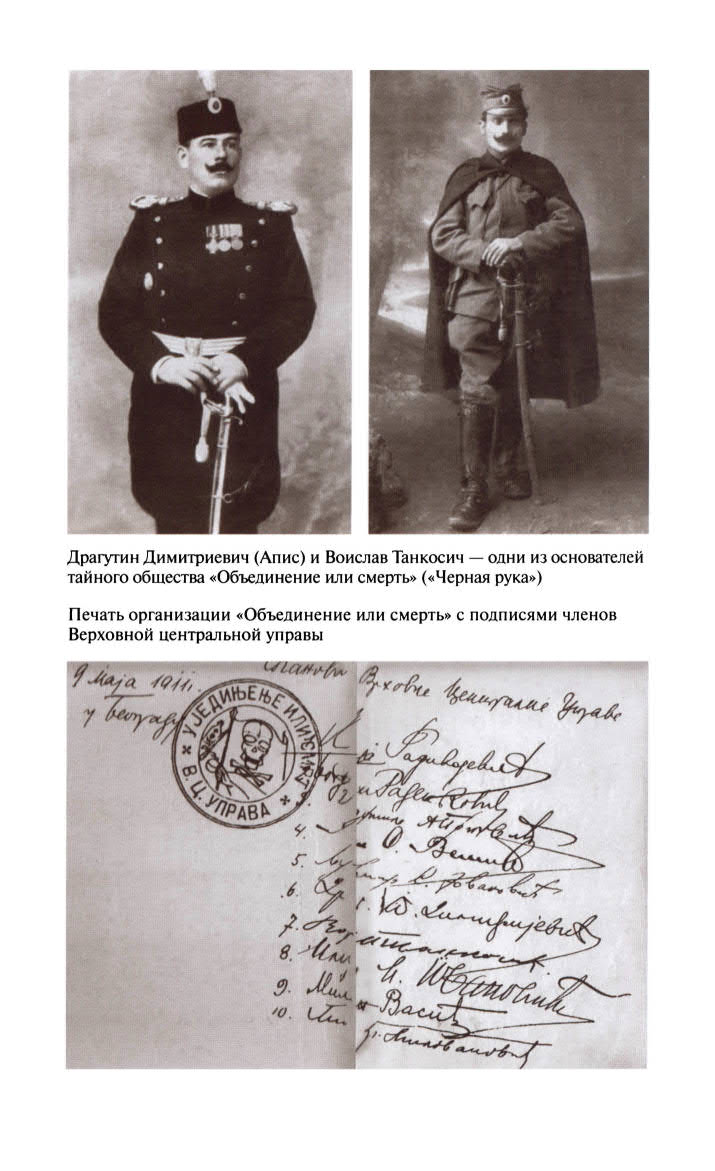 Драгутин Димитриевич (Апис) и Воислав Танкосич — одни из основателей
тайного общества «Объединение или смерть» («Черная рука»)
Печать организации «Объединение или смерть» с подписями членов
Верховной центральной управы
9 маја 1911.
у Београду
Чланови Верховне Централне Управе
УЈЕДИЊЕЊЕ ИЛИ СМРТ
В.Ц. УПРАВА
Радивојевић
2 Раденковић
4.
5. О. Велим
6. С. Јовановић
7. Димитријевић
8.
9. Васић
10. Миловановић